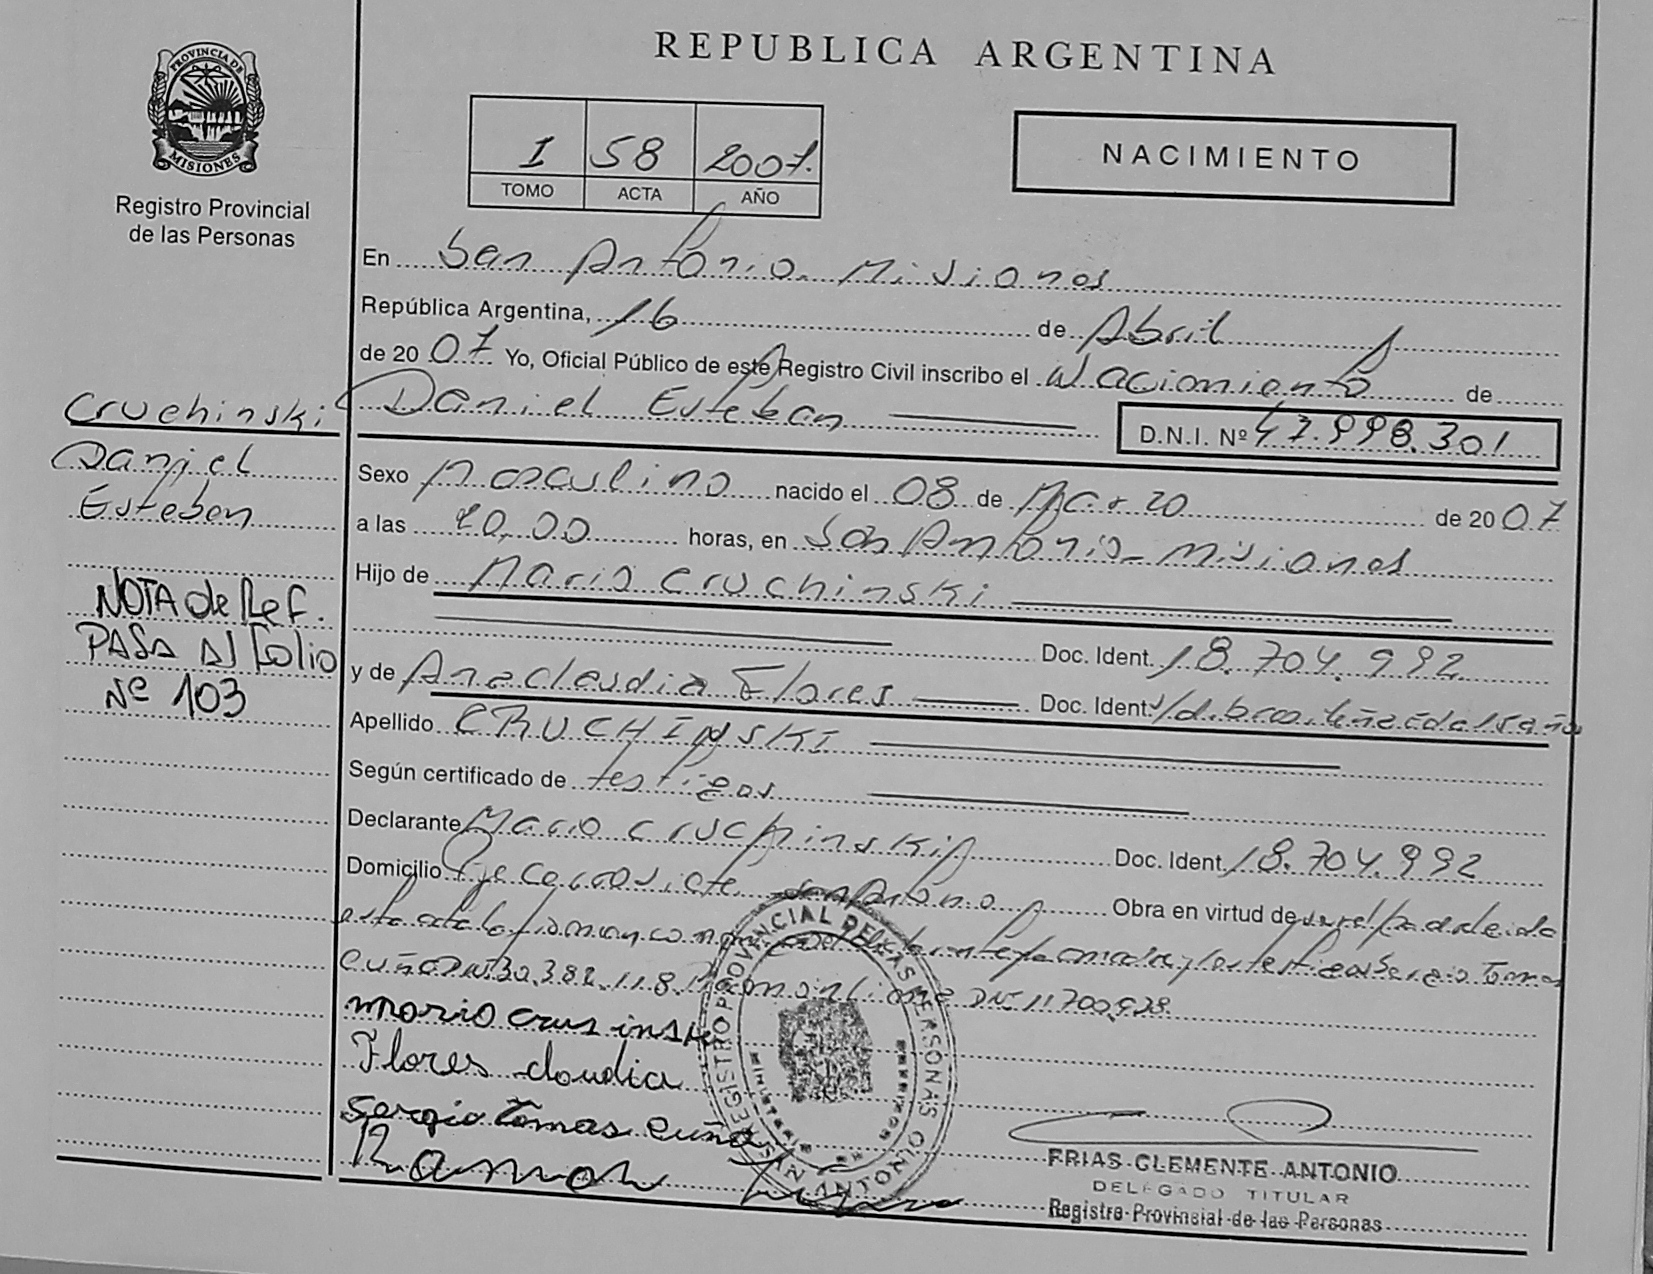 REPUBLICA ARGENTINA
PROVINCIA DE
MISIONES
Registro Provincial
de las Personas
I 58 2007.
TOMO ACTA AÑO
NACIMIENTO
En San Antonio Misiones
República Argentina, 16 de Abril
de 2007 Yo, Oficial Público de este Registro Civil inscribo el Nacimiento de
Daniel Esteban D.N.I. Nº 47.998.301
Cruchinski
Daniel
Esteben
NOTA de Ref.
PASA Al Folio
Nº 103
Sexo Masculino nacido el 08 de Marzo de 2007
a las 20,00 horas, en San Antonio Misiones
Hijo de Mario Cruchinski
Doc. Ident. 18.704.992
y de Ana Claudia Flores Doc. Ident.
Apellido CRUCHINSKI
Según certificado de testigos
Declarante Mario Cruchinski Doc. Ident. 18.704.992
Domicilio San Antonio Obra en virtud de
esta acta la firman
30.382.118 11700.928
mario crus inski
Flores claudia
Sergio tomas cuña
Ramon
REGISTRO PROVINCIAL DE LAS PERSONAS
SAN ANTONIO
FRIAS CLEMENTE ANTONIO
DELEGADO TITULAR
Registro Provincial de las Personas